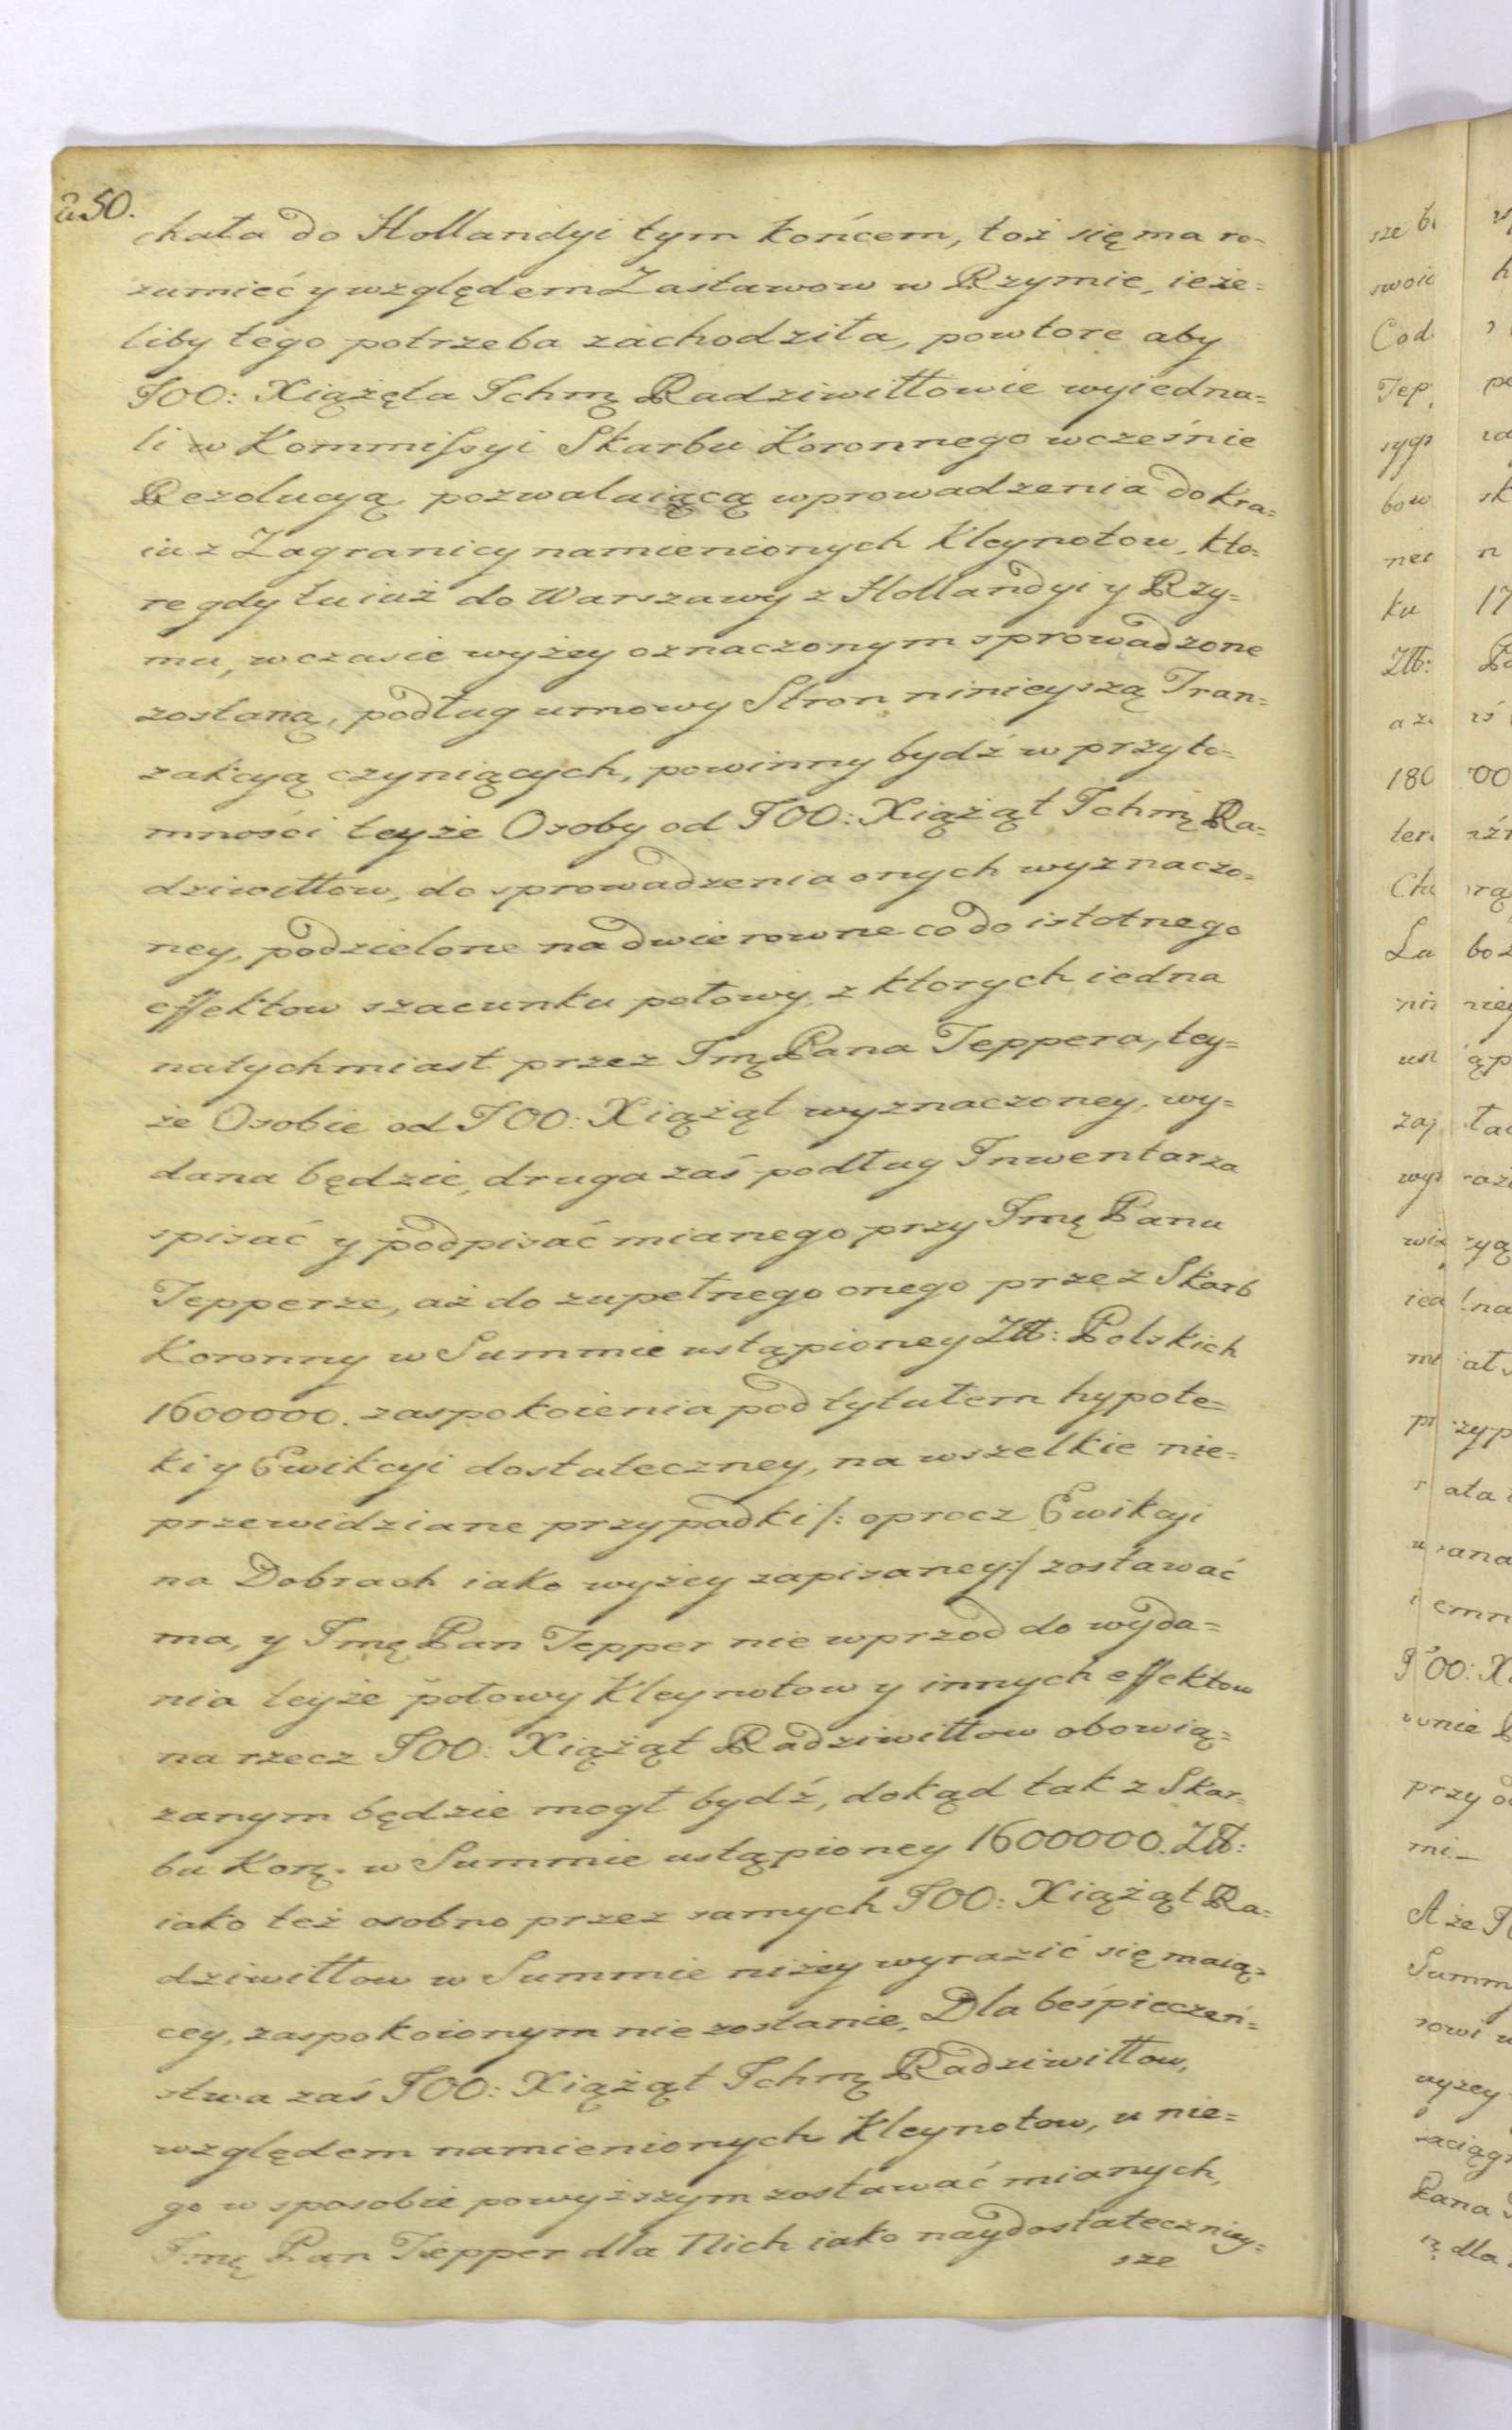 250.
chała do Hollandyi tym końcem, toż się ma ro=
zumieć y względem Zastawow w Rzymie, ieże=
liby tego potrzeba zachodziła, powtore aby
JOO: Xiążęta Jchmę Radziwiłłowie wyiedna=
li w Kommissyi Skarbu Koronnego wcześnie
Rezolucyą pozwalaiącą wprowadzenia do Kra=
iu z Zagranicy namienionych Kleynotow, kto=
re gdy tu iuż do Warszawy z Hollandyi y Rzy=
mu, w czasie wyżey oznaczonym sprowadzone
zostaną, podług umowy Stron ninieyszą Tran=
zakcyą czyniących, powinny bydź w przyto=
mności teyże Osoby od JOO: Xiążąt Jchmę Ra=
dziwiłłow, do sprowadzenia onych wyznaczo=
ney, podzielone na dwie rowne co do istotnego
effektow szacunku połowy, z ktorych iedna
natychmiast przez Jmę Pana Teppera, tey=
że Osobie od JOO: Xiążąt wyznaczoney, wy=
dana będzie, druga zaś podług Inwentarza
spisać y podpisać mianego przy Jmę Panu
Tepperze, aż do zupełnego onego przez Skarb
Koronny w Summie ustąpioney Złł: Polskich
1600000. zaspokoienia pod tytułem hypote=
ki y Ewikcyi dostateczney, na wszelkie nie=
przewidziane przypadki /: oprocz Ewikcyi
na Dobrach iako wyżey zapisaney :/ zostawać
ma, y Jmę Pan Tepper nie wprzod do wyda=
nia teyże połowy Kleynotow y innych effektow
na rzecz JOO: Xiążąt Radziwiłłow obowią=
zanym będzie mogł bydź, dokąd tak z Skar=
bu Korę. w Summie ustąpioney 1600000. Złł:
iako też osobno przez samych JOO: Xiążąt Ra=
dziwiłłow w Summie niżey wyrazić się maią=
cey, zaspokoionym nie zostanie. Dla beśpieczeń=
stwa zaś JOO: Xiążąt Jchmę Radziwiłłow,
względem namienionych Kleynotow, u nie=
go w sposobie powyższym zostawać mianych,
Jmę Pan Tepper dla Nich iako naydostateczniey=
sze